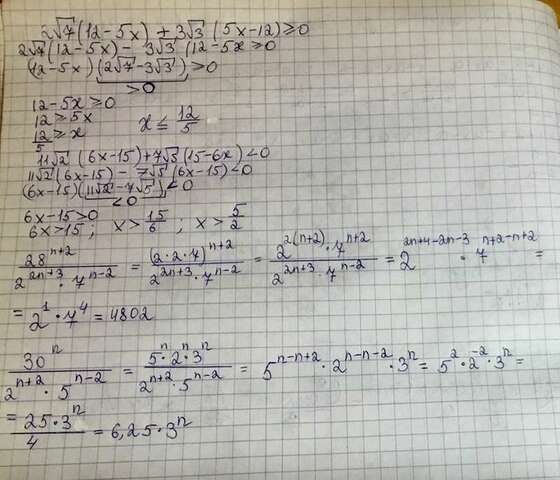 2√7(12-5x) + 3√3 (5x-12) ≥0
2√7(12-5x) - 3√3 (12-5x ≥0
(12-5x)(2√7-3√3) ≥0
>0
12-5x ≥0
12 ≥5x
12/5 ≥ x x ≤ 12/5
11√2 (6x-15)+7√5(15-6x) <0
11√2(6x-15) - 7√5(6x-15)<0
(6x-15)(11√2-7√5)<0
<0
6x-15>0
6x>15; x>15/6; x>5/2
28^(n+2)/(2^(2n+3)·7^(n-2)) = (2·2·7)^(n+2)/(2^(2n+3)·7^(n-2)) = 2^(2(n+2))·7^(n+2)/(2^(2n+3)·7^(n-2)) = 2^(2n+4-2n-3)·7^(n+2-n+2) =
= 2^1·7^4 = 4802
30^n/(2^(n+2)·5^(n-2)) = 5^n·2^n·3^n/(2^(n+2)·5^(n-2)) = 5^(n-n+2)·2^(n-n-2)·3^n = 5^2·2^(-2)·3^n =
= 25·3^n/4 = 6,25·3^n